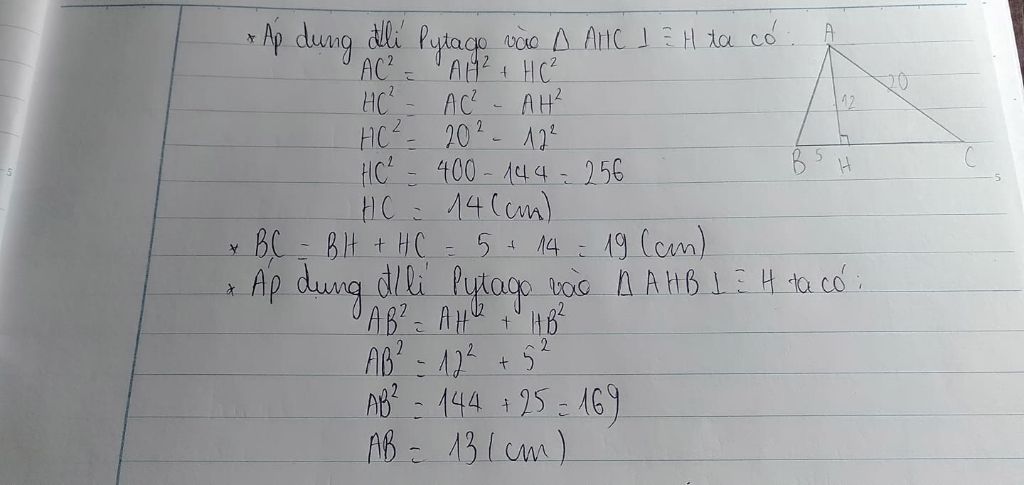 * Áp dụng đ/lí Pytago vào Δ AHC ⊥ ≡ H ta có:
AC² = AH² + HC²
HC² = AC² - AH²
HC² = 20² - 12²
HC² = 400 - 144 = 256
HC = 14 (cm)
* BC = BH + HC = 5 + 14 = 19 (cm)
* Áp dụng đ/lí Pytago vào Δ AHB ⊥ ≡ H ta có:
AB² = AH² + HB²
AB² = 12² + 5²
AB² = 144 + 25 = 169
AB = 13 (cm)
A
20
12
B 5 H C
5
5